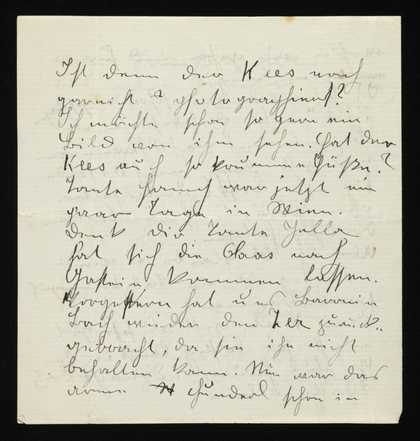 Ist denn der Kees noch
garnicht photographiert?
Ich möchte schon so gern ein
Bild von ihm sehen. Hat der
Kees auch so krumme Füße?
Tante war jetzt ein
paar Tage in Wien.
Denk dir Tante Jella
hat sich die Claas nach
Gastein kommen lassen.
Vorgestern hat uns Baronin
Bach wieder den zurück-
gebracht, da sie ihn nicht
behalten kann. Nun war das
arme Hunderl schon in